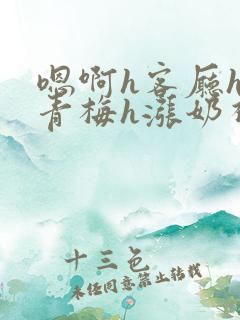 嗯啊h客厅h
青梅h涨奶
十三色
未经同意禁止转载